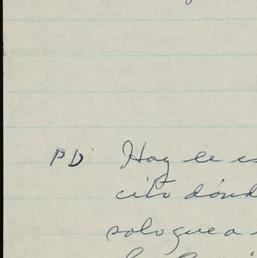 PD Hoy le es
cito dond
solo que a